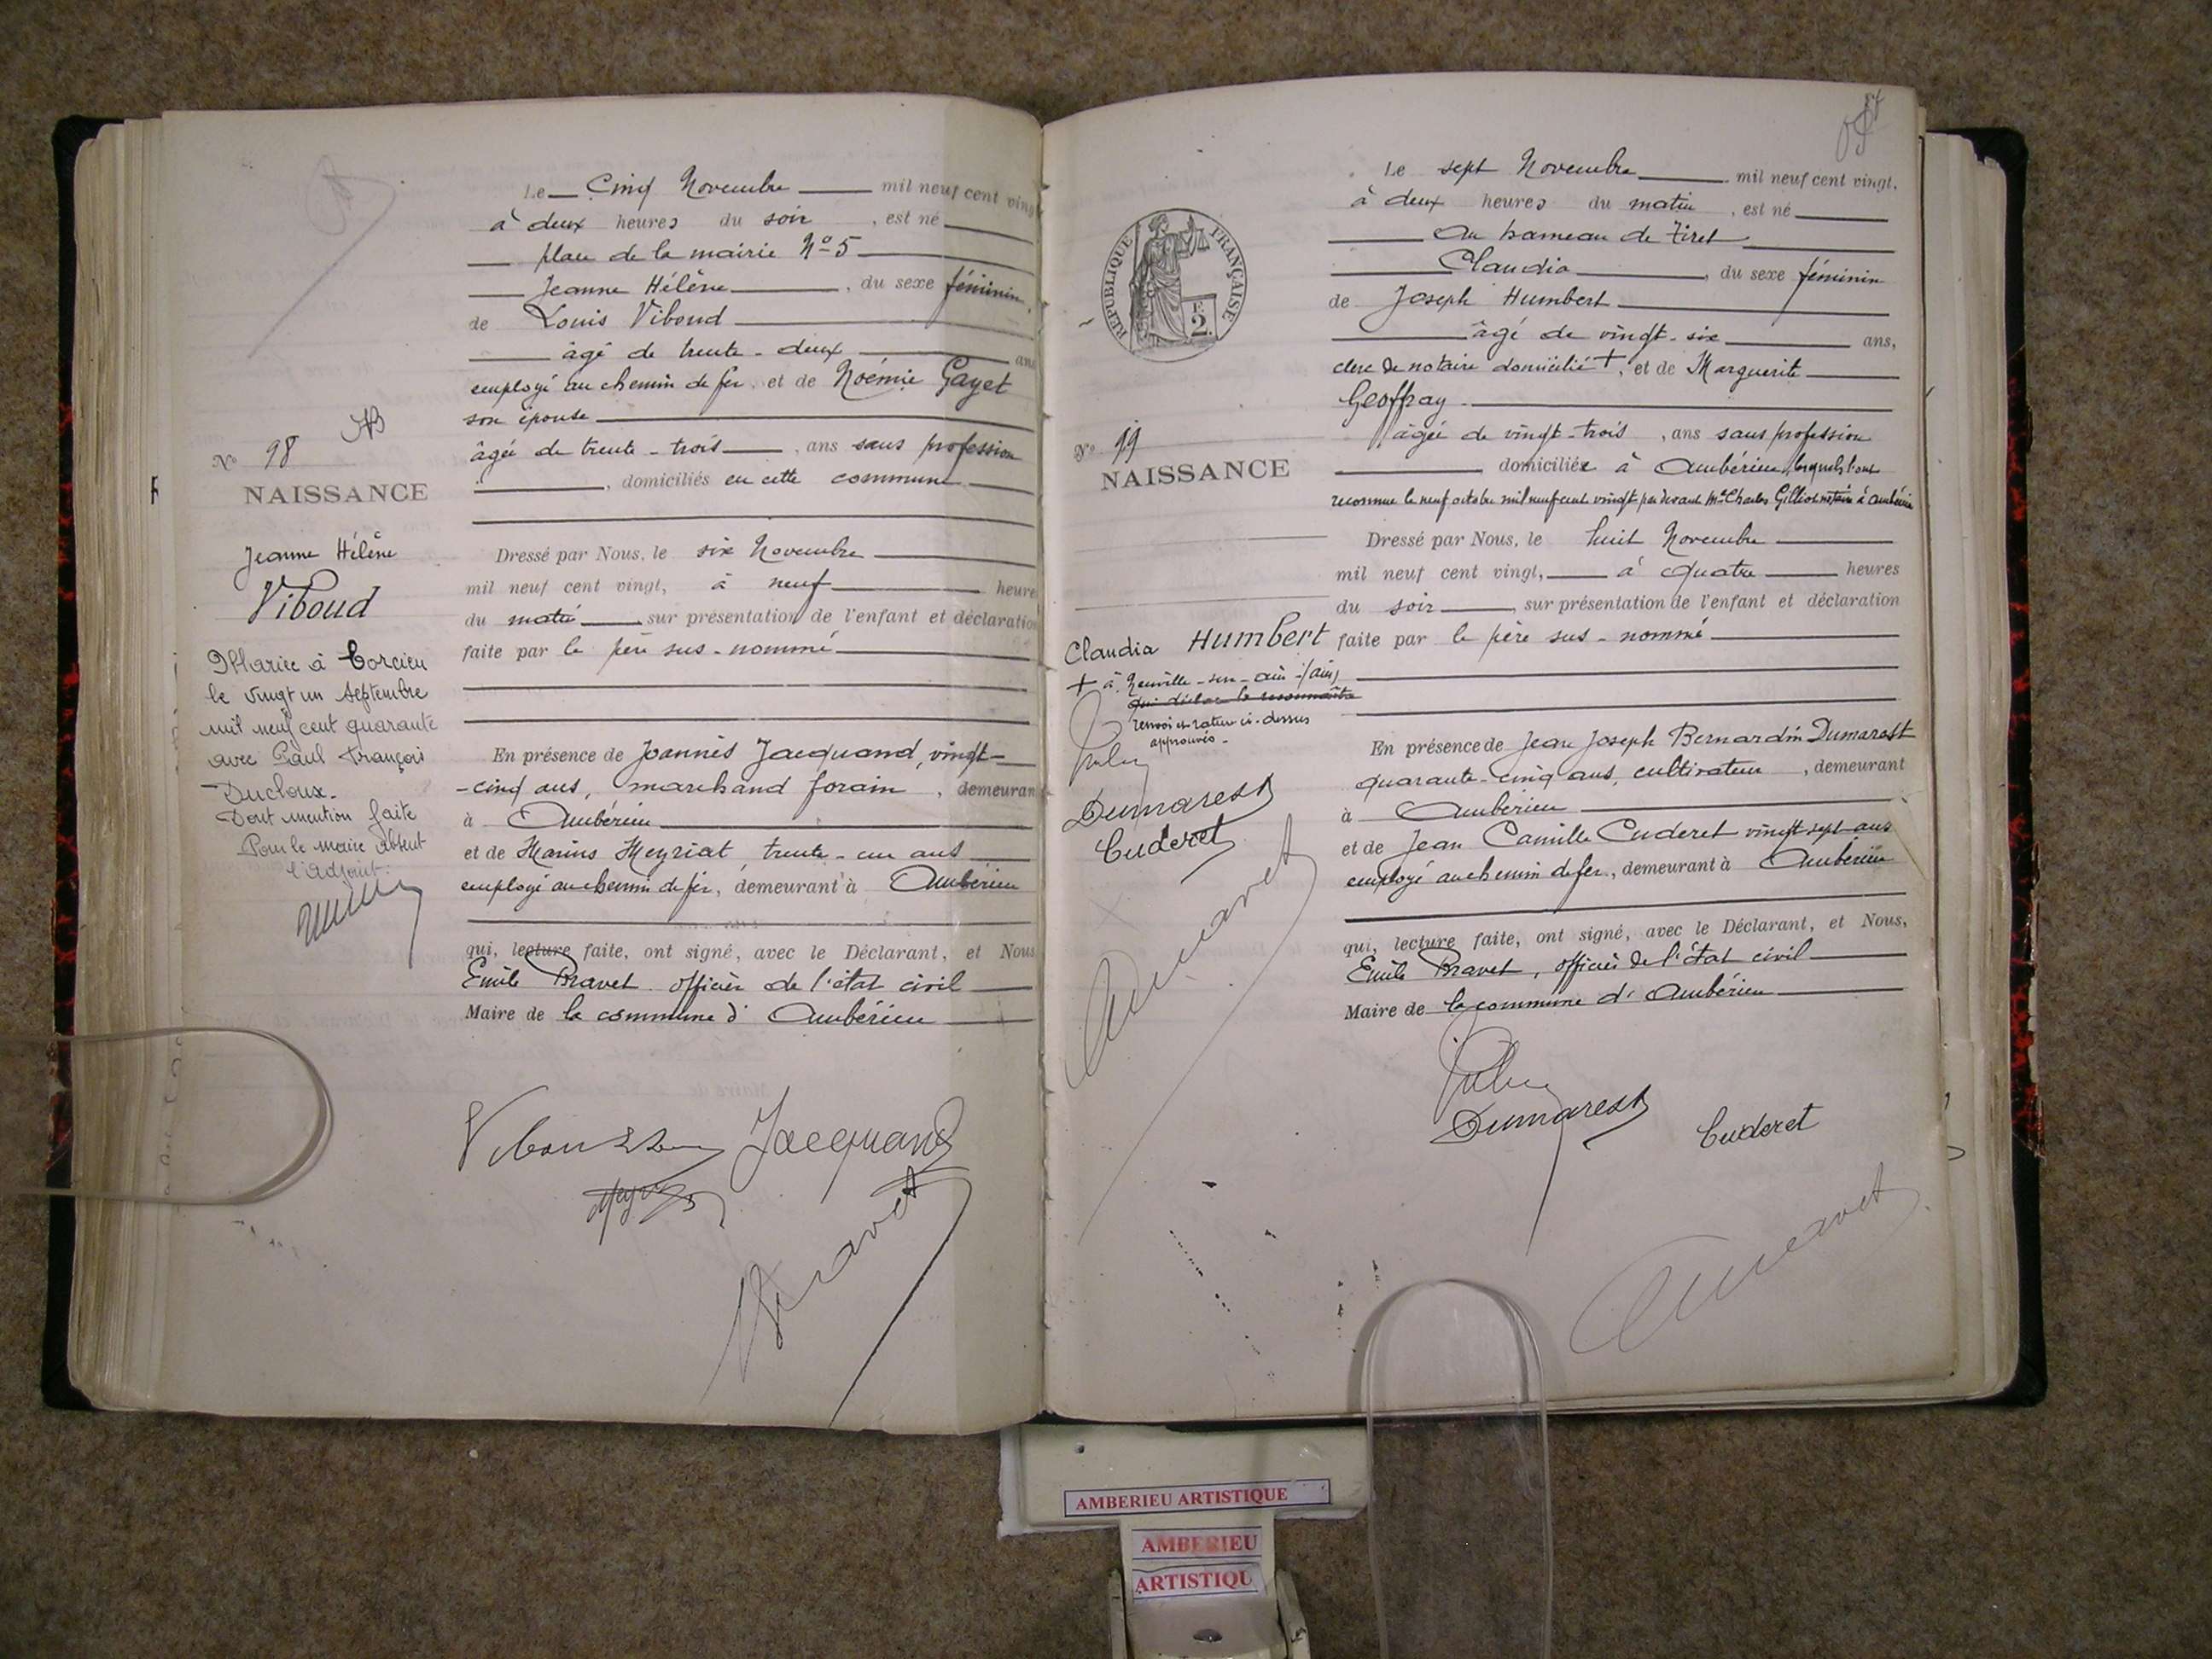 Le Cinq Novembre mil neuf cent vingt
à deux heures du soir, est né
place de la mairie Nº 5
Jeanne Hélène, du sexe féminin,
de Louis Viboud
âgé de trente-deux ans
employé au chemin de fer, et de Noémie Gayet
son épouse
âgée de trente-trois, ans sans profession
, domiciliés en cette commune
Dressé par Nous, le six Novembre
mil neuf cent vingt, à neuf heure
du matin, sur présentation de l'enfant et déclaration
faite par le père sus-nommé
En présence de Joannès Jacquand, vingt-
-cinq ans, marchand forain, demeuran
à Ambérieu
et de Marius Meyriat, trente-un ans
employé au chemin de fer, demeurant à Ambérieu
qui, lecture faite, ont signé, avec le Déclarant, et Nous
Emile Bravet officier de l'état civil
Maire de la commune d'Ambérieu
Jacquand
Bravet
Nº 98
NAISSANCE
Jeanne Hélène
Viboud
Mariée à Torcieu
le vingt un Septembre
mil neuf cent quarante
avec Paul François
Ducloux.
Dont mention faite
Pour le maire absent
l'adjoint:
Le sept Novembre mil neuf cent vingt,
à deux heures du matin, est né
Au hameau de Tiret
Claudia, du sexe féminin
de Joseph Humbert
âgé de vingt-six ans,
clerc de notaire domicilié +, et de Marguerite
Geoffray
âgée de vingt-trois, ans sans profession
domiciliée à Ambérieu, lesquels l'ont
reconnue le neuf octobre mil neuf cent vingt par devant Me Charles Gilliot notaire à Ambérieu
Dressé par Nous, le huit Novembre
mil neuf cent vingt, à quatre heures
du soir, sur présentation de l'enfant et déclaration
faite par le père sus-nommé
En présence de Jean Joseph Bernardin Dumarest
quarante-cinq ans, cultivateur, demeurant
à Ambérieu
et de Jean Camille Cuderet vingt-sept ans
employé au chemin de fer, demeurant à Ambérieu
qui, lecture faite, ont signé, avec le Déclarant, et Nous,
Emile Bravet, officier de l'état civil
Maire de la commune d'Ambérieu
Dumarest
Cuderet
Bravet
REPUBLIQUE FRANÇAISE
F. 2.
Nº 99
NAISSANCE
Claudia Humbert
+ à Neuville-sur-ain (ain)
qui déclare le reconnaître
renvoi et rature ci-dessus
approuvés.
Dumarest
Cuderet
Bravet
AMBERIEU ARTISTIQUE
AMBERIEU
ARTISTIQU